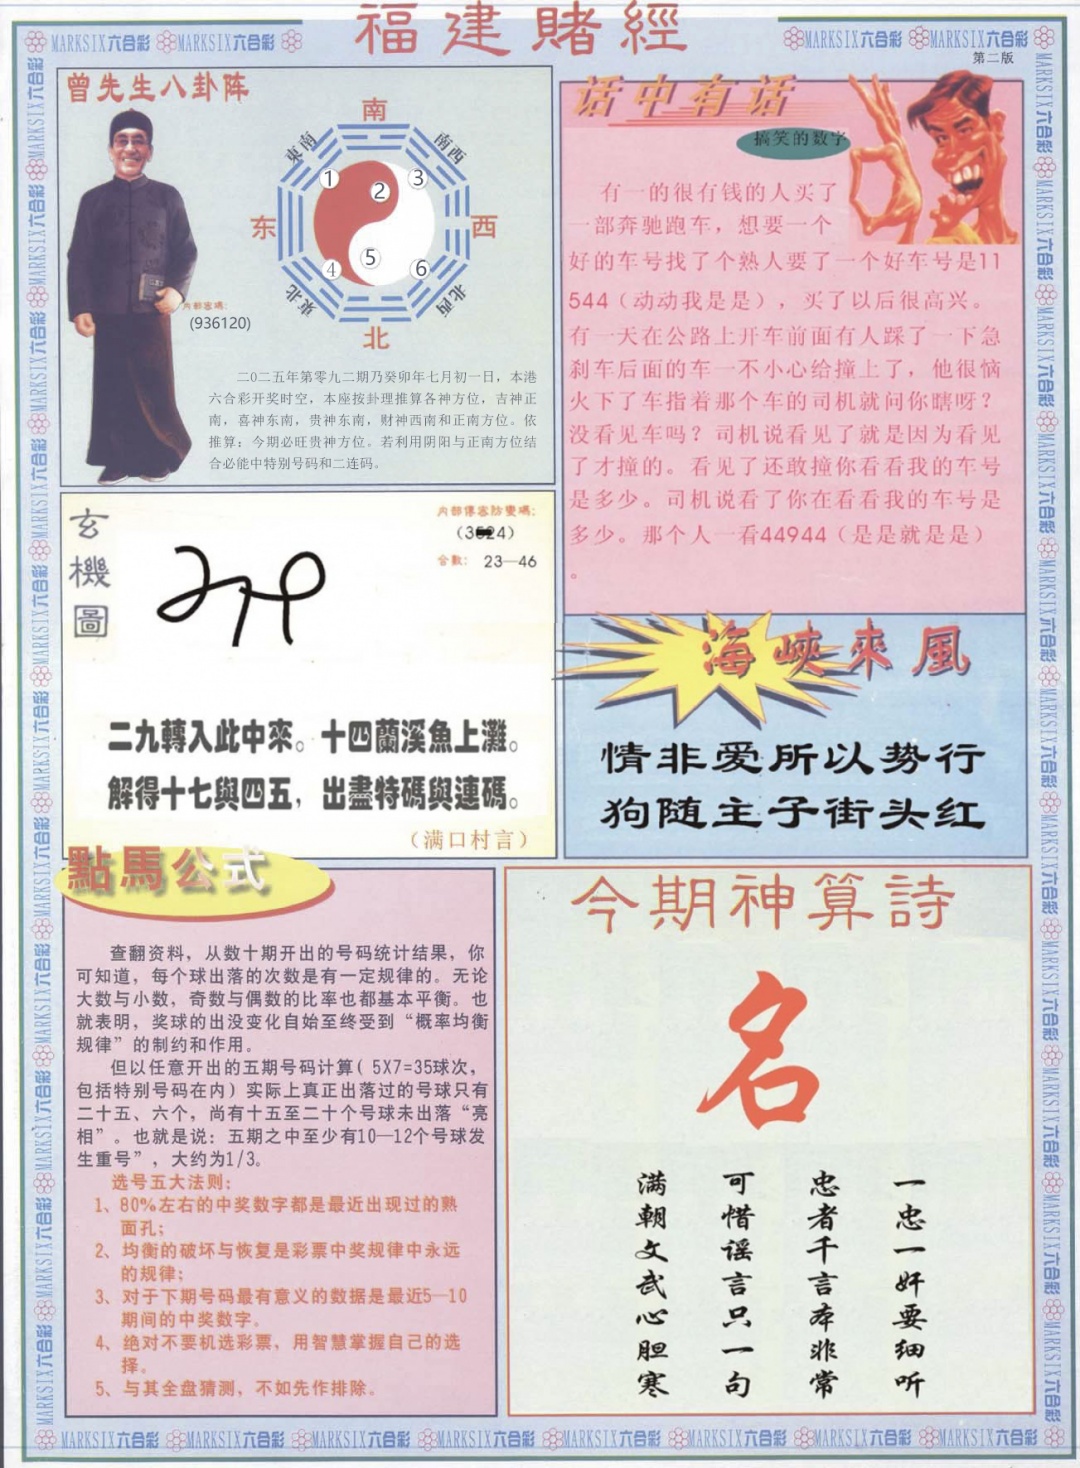 福建賭經
MARKSIX六合彩 MARKSIX六合彩
MARKSIX六合彩 MARKSIX六合彩
第二版
曾先生八卦阵
南
東南
南西
1
2
3
东
西
4
5
6
東北
北西
北
内部密碼:
(936120)
二〇二五年第零九二期乃癸卯年七月初一日，本港
六合彩开奖时空，本座按卦理推算各神方位，吉神正
南，喜神东南，贵神东南，财神西南和正南方位。依
推算：今期必旺贵神方位。若利用阴阳与正南方位结
合必能中特别号码和二连码。
话中有话
搞笑的数字
有一的很有钱的人买了
一部奔驰跑车，想要一个
好的车号找了个熟人要了一个好车号是11
544（动动我是是），买了以后很高兴。
有一天在公路上开车前面有人踩了一下急
刹车后面的车一不小心给撞上了，他很恼
火下了车指着那个车的司机就问你瞎呀？
没看见车吗？司机说看见了就是因为看见
了才撞的。看见了还敢撞你看看我的车号
是多少。司机说看了你在看看我的车号是
多少。那个人一看44944（是是就是是）
。
玄機圖
内部傳密防變碼:
合數: 23—46
二九轉入此中來。十四蘭溪魚上灘。
解得十七與四五，出盡特碼與連碼。
（满口村言）
海峽來風
情非爱所以势行
狗随主子街头红
點馬公式
查翻资料，从数十期开出的号码统计结果，你
可知道，每个球出落的次数是有一定规律的。无论
大数与小数，奇数与偶数的比率也都基本平衡。也
就表明，奖球的出没变化自始至终受到“概率均衡
规律”的制约和作用。
但以任意开出的五期号码计算( 5X7=35球次，
包括特别号码在内）实际上真正出落过的号球只有
二十五、六个，尚有十五至二十个号球未出落“亮
相”。也就是说：五期之中至少有10—12个号球发
生重号”，大约为1/3。
选号五大法则:
1、80%左右的中奖数字都是最近出现过的熟
面孔；
2、均衡的破坏与恢复是彩票中奖规律中永远
的规律；
3、对于下期号码最有意义的数据是最近5—10
期间的中奖数字。
4、绝对不要机选彩票，用智慧掌握自己的选
择。
5、与其全盘猜测，不如先作排除。
今期神算詩
名
一忠一奸要细听
忠者千言本非常
可惜谣言只一句
满朝文武心胆寒
MARKSIX六合彩 MARKSIX六合彩 MARKSIX六合彩 MARKSIX六合彩 MARKSIX六合彩 MARKSIX六合彩 MARKSIX六合彩 MARKSIX六合彩